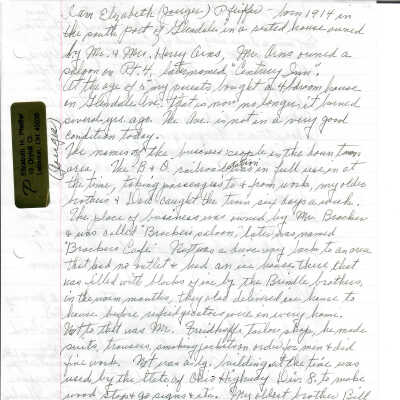 I am Elizabeth (Junger) Pfeiffer - born 1914 in
the south part of Glendale, in a rented house owned
by Mr. & Mrs. Harry Arns, Mr. Arns owned a
saloon on Rt. 4, later named "Century Inn".
At the age of 5 my parents bought a 4 bdroom house
on Glendale Ave. That is now no longer, it burned
several yrs. ago. The Ave. is not in a very good
condition today.
The names of the business people in the town
area, The B & O railroad station was in full session at
the time, taking passengers to & from work, my older
brothers & Dad caught the train six days a week.
The place of business was owned by Mr. Brocker
& was called "Brockers saloon," later was named
"Brockers Cafe". Next was a drive way back to an area
that had no outlet & had an ice house there that
was filled with blocks of ice by the Brindle brothers,
in the warm months, they also delivered ice house to
house before refrigerators were in every home.
Next to that was Mr. Friedhoff's Tailor shop, he made
suits, trousers, smoking jackets on order for men & did
fine work. Next was a bldg. building, at the time was
used by the State of Ohio Highway Div. 8, to make
wood Stop & go signs & etc. My oldest brother Bill
Elizabeth H. Pfeiffer
Lebanon, OH 45036
(Junger)